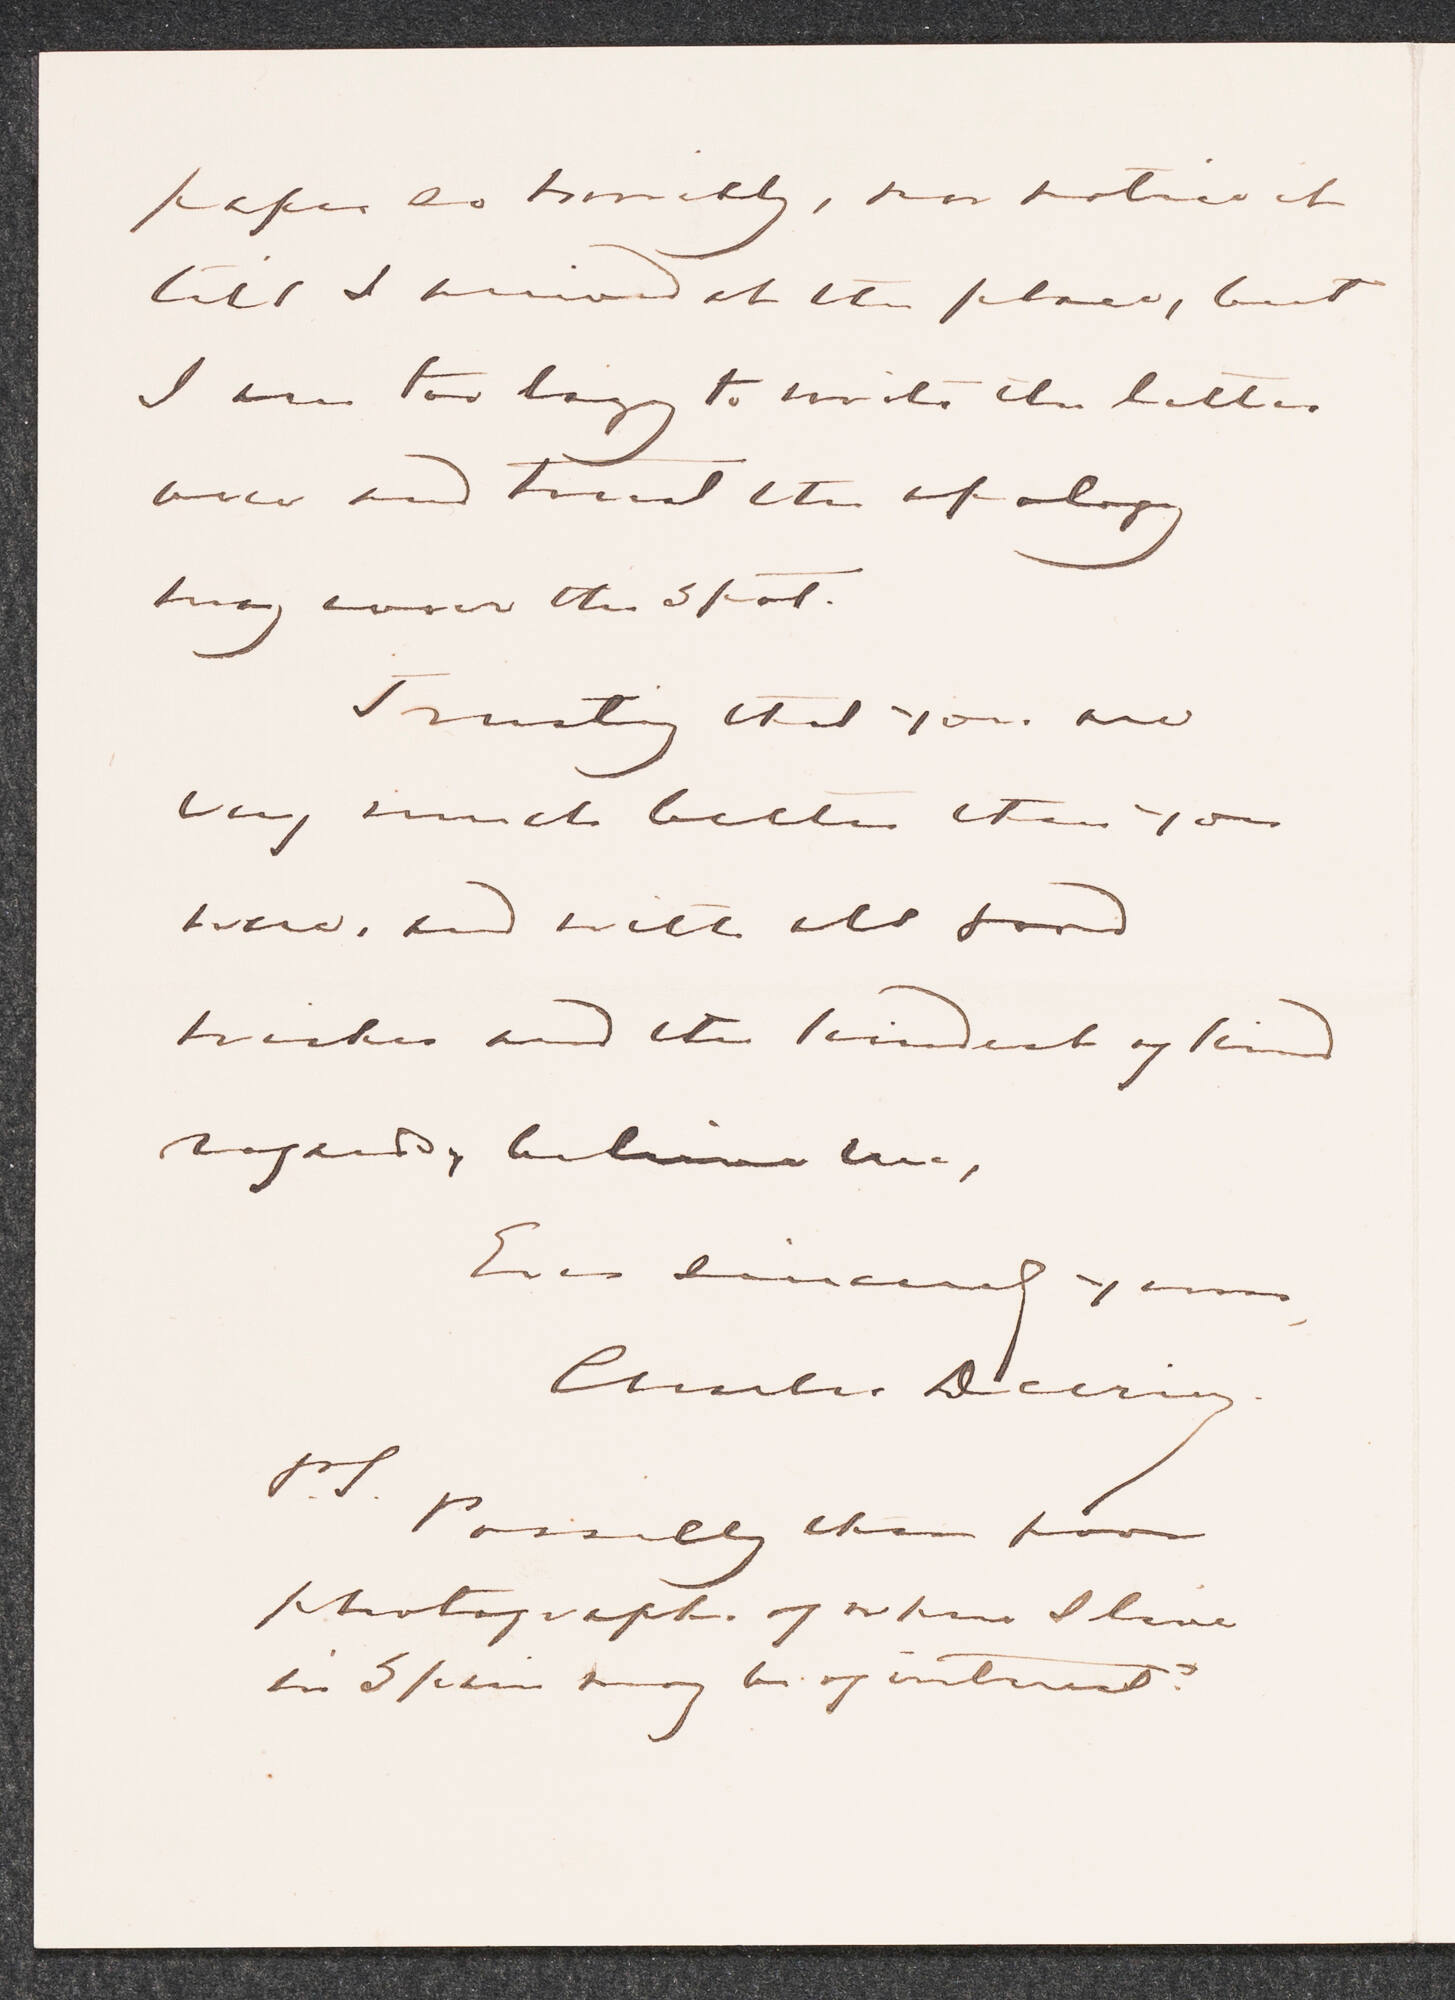 paper so horribly, nor notice it
till I arrived at the place, but
I am too lazy to write the letter
over and trust the apology
may cover the spot.
Trusting that you are
very much better than you
were, and with all good
wishes and the kindest of kind
regards, believe me,
Ever sincerely yours,
Charles Deering.
P.S.
Possibly these poor
photographs of where I live
in Spain may be of interest?